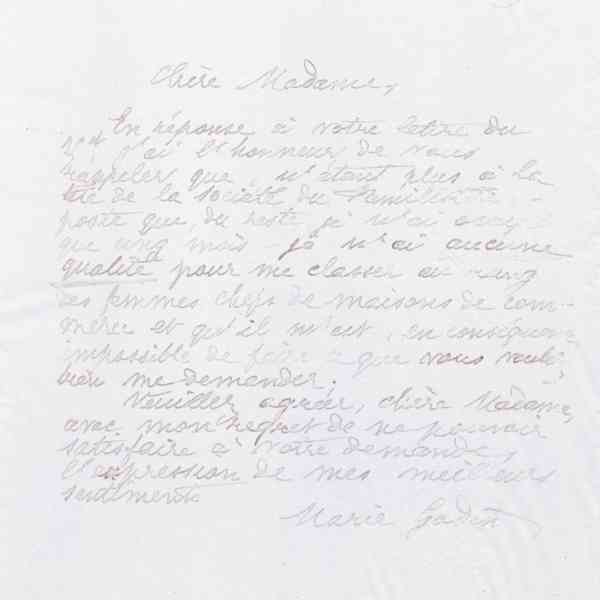 Chère Madame,
En réponse à votre lettre du
j'ai l'honneur de vous
rappeler que, n'étant plus à la
tête de la société du Familistère, -
poste que, du reste, je n'ai occupé
que cinq mois - je n'ai aucune
qualité pour me classer au rang
des femmes chefs de maisons de com-
merce et qu'il m'est, en conséquence
impossible de faire ce que vous voulez
bien me demander.
Veuillez agréer, chère Madame,
avec mon regret de ne pouvoir
satisfaire à votre demande,
l'expression de mes meilleurs
sentiments
Marie Godin